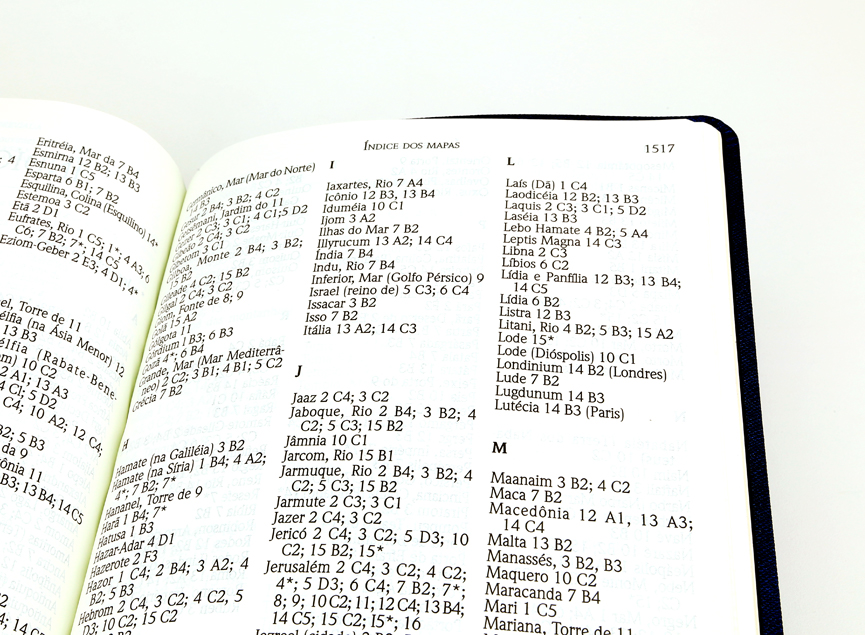 4
Eritréia, Mar da 7 B4
Esmirna 12 B2; 13 B3
Esnuna 1 C5
Esparta 6 B1; 7 B2
Esquilina, Colina (Esquilino) 14*
Estemoa 3 C2
Etã 2 D1
Eufrates, Rio 1 C5; 1*; 4 A3; 6
C6; 7 B2; 7*; 14 C5
Eziom-Geber 2 E3; 4 D1; 4*
Torre de 11
(na Ásia Menor) 12
13 B3
(Rabate-Bene-
10 C2
2 A1; 13 A3
4 Cl; 5 D2
C4; 10 A2; 12 C4;
B2; 5 B3
da 9
11
B3; 13 B4; 14 C5
ÍNDICE DOS MAPAS 1517
Mar (Mar do Norte)
14 B3
2 B4; 3 B2; 4 C2
Jardim do 11
2 C3; 3 C1; 4 C1;5 D2
2 C4; 3 C2
3 C1
Monte 2 B4; 3 B2;
15 B2
4 C2; 15 B2
2 C4; 3 C2
Fonte de 8; 9
15 A2
Gólgota 11
Górdium 1 B3; 6 B3
Gozã 4*; 6 B4
Grande, Mar (Mar Mediterrâ-
neo) 2 C2; 3 B1; 4 B1; 5 C2
Grécia 7 B2
H
Hamate (na Galiléia) 3 B2
Hamate (na Síria) 1 B4; 4 A2;
4*; 7 B2; 7*
Hananel, Torre de 9
Harã 1 B4; 7*
Hatusa 1 B3
Hazar-Adar 4 D1
Hazerote 2 F3
Hazor 1 C4; 2 B4; 3 A2; 4
B2; 5 B3
Hebrom 2 C4, 3 C2; 4 C2, 5
D3; 10 C2; 15 C2
I
Iaxartes, Rio 7 A4
Icônio 12 B3, 13 B4
Iduméia 10 C1
Ijom 3 A2
Ilhas do Mar 7 B2
Illyrucum 13 A2; 14 C4
Índia 7 B4
Indu, Rio 7 B4
Inferior, Mar (Golfo Pérsico) 9
Israel (reino de) 5 C3; 6 C4
Issacar 3 B2
Isso 7 B2
Itália 13 A2; 14 C3
J
Jaaz 2 C4; 3 C2
Jaboque, Rio 2 B4; 3 B2; 4
C2; 5 C3; 15 B2
Jâmnia 10 C1
Jarcom, Rio 15 B1
Jarmuque, Rio 2 B4; 3 B2; 4
C2; 5 C3; 15 B2
Jarmute 2 C3; 3 C1
Jazer 2 C4; 3 C2
Jericó 2 C4; 3 C2; 5 D3; 10
C2; 15 B2; 15*
Jerusalém 2 C4; 3 C2; 4 C2;
4*; 5 D3; 6 C4; 7 B2; 7*;
8; 9; 10 C2; 11; 12 C4; 13 B4;
14 C5; 15 C2; 15*; 16
L
Laís (Dã) 1 C4
Laodicéia 12 B2; 13 B3
Laquis 2 C3; 3 C1; 5 D2
Laséia 13 B3
Lebo Hamate 4 B2; 5 A4
Leptis Magna 14 C3
Libna 2 C3
Líbios 6 C2
Lídia e Panfília 12 B3; 13 B4;
14 C5
Lídia 6 B2
Listra 12 B3
Litani, Rio 4 B2; 5 B3; 15 A2
Lode 15*
Lode (Dióspolis) 10 C1
Londinium 14 B2 (Londres)
Lude 7 B2
Lugdunum 14 B3
Lutécia 14 B3 (Paris)
M
Maanaim 3 B2; 4 C2
Maca 7 B2
Macedônia 12 A1, 13 A3;
14 C4
Malta 13 B2
Manassés, 3 B2, B3
Maquero 10 C2
Maracanda 7 B4
Mari 1 C5
Mariana, Torre de 11